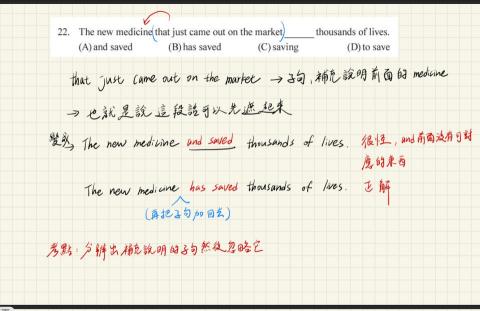 22. The new medicine that just came out on the market______ thousands of lives.
(A) and saved (B) has saved (C) saving (D) to save
that just came out on the market → 子句,補充說明前面的 medicine
→ 也就是說 這段話可以先遮起來
變成→ The new medicine and saved thousands of lives. 很怪,and前面沒有可對
應的東西
The new medicine has saved thousands of lives. 正解
(再把子句加回去)
考點:分辨出補充說明的子句然後忽略它